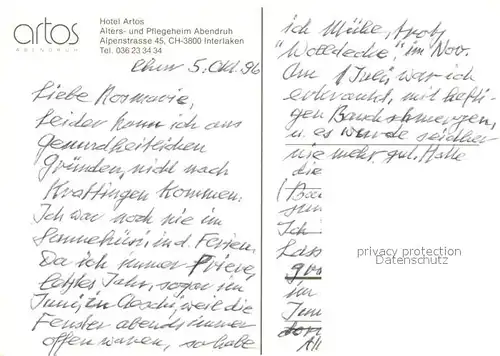 artos
ABENDRUH
Hotel Artos
Alters- und Pflegeheim Abendruh
Alpenstrasse 45, CH-3800 Interlaken
Tel. 036 23 34 34
Chur 5. Okt. 96
Liebe Rosmarie,
Leider kann ich aus
gesundheitlichen
gründen, nicht nach
Krattingen kommen.
Ich war noch nie im
Sunnehüsi, in d. Ferien.
Da ich immer friere,
letztes Jahr, sogar im
Juni, in Aeschi, weil die
Fenster abends immer
offen waren, so habe
ich Mühe, trotz
"Wolldecke", im Nov.
Am 1 Juli war ich
erkrankt, mit hefti-
gen Bauchschmerzen,
u. es wurde seither
nie mehr gut. Hatte
die
(Bau
Ich
Lass
im
privacy protection
Datenschutz